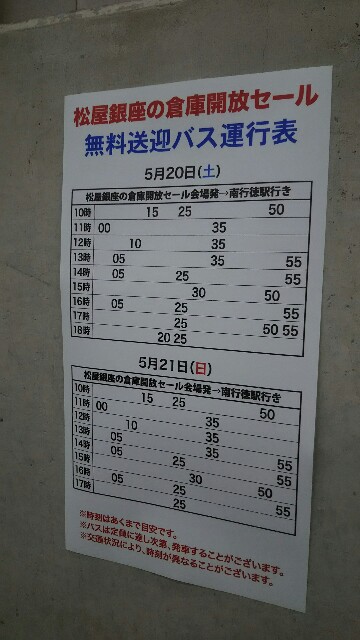 松屋銀座の倉庫開放セール
無料送迎バス運行表
5月20日(土)
松屋銀座の倉庫開放セール会場発→南行徳駅行き
10時 15 25 50
11時 00 35
12時 10 35
13時 05 35 55
14時 05 25 55
15時 30 50
16時 05 25 55
17時 25 50 55
18時 20 25
5月21日(日)
松屋銀座の倉庫開放セール会場発→南行徳駅行き
10時 15 25 50
11時 00 35
12時 10 35
13時 05 35
14時 05 25 55
15時 30 50
16時 05 25 55
17時 25 55
※時刻はあくまで目安です。
※バスは定員に達し次第、発車することがございます。
※交通状況により、時刻が異なることがございます。